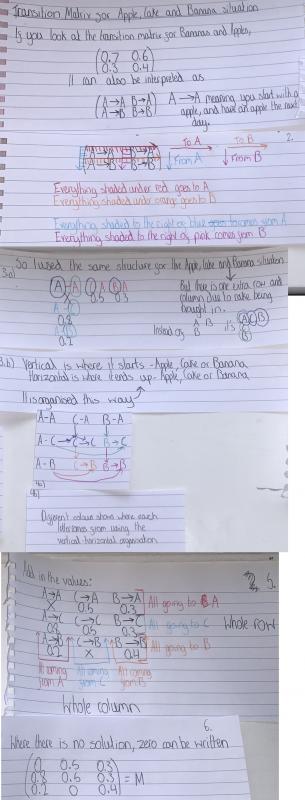 Transition Matrix for Apple, Cake and Banana situation
If you look at the transition matrix for Bananas and Apples,
(0.7 0.6)
(0.3 0.4)
It can also be interpreted as
(A→A B→A) A→A meaning you start with a
(A→B B→B) apple, and have an apple the next
day.
2.
A→A B→A
A→B B→B
To A To B
From A From B
Everything shaded under red goes to A
Everything shaded under orange goes to B
Everything shaded to the right of blue comes from A
Everything shaded to the right of pink comes from B
So I used the same structure for the Apple, Cake and Banana situation
3.a)
0.5 0.3
But there is one extra row and
column due to cake being
brought in.
A-C
0.8
0.2
Instead of A B it's A C B
B
3.b) Vertical is where it starts - Apple, Cake or Banana
Horizontal is where it ends up - Apple, Cake or Banana
It is organised this way
A-A C-A B-A
A-C C→C B→C
A-B C→B B→B
4a)
4b)
Different colours shows where each
letter comes from using the
vertical-horizontal organisation
5.
Add in the values:
A→A C→A B→A All going to A
X 0.5 0.3
A→C C→C B→C All going to C Whole row
0.8 0.5 0.3
A→B C→B B→B All going to B
0.2 X 0.4
All coming from A
All coming from C
All coming from B
Whole column
6.
Where there is no solution, zero can be written
(0 0.5 0.3)
(0.8 0.5 0.3) = M
(0.2 0 0.4)